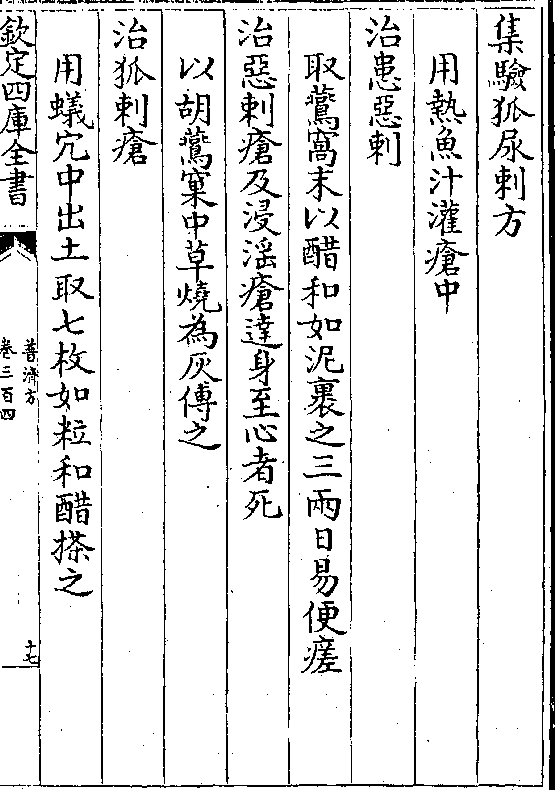 集驗狐尿刺方
用熱魚汁灌瘡中
治患惡刺
取鷰窩末以醋和如泥裹之三兩日易便瘥
治惡刺瘡及浸滛瘡達身至心者死
以胡鷰窠中草燒為灰傅之
治狐刺瘡
用蟻穴中出土取七枚如粒和醋搽之
欽定四庫全書
普濟方
卷三百四
十七